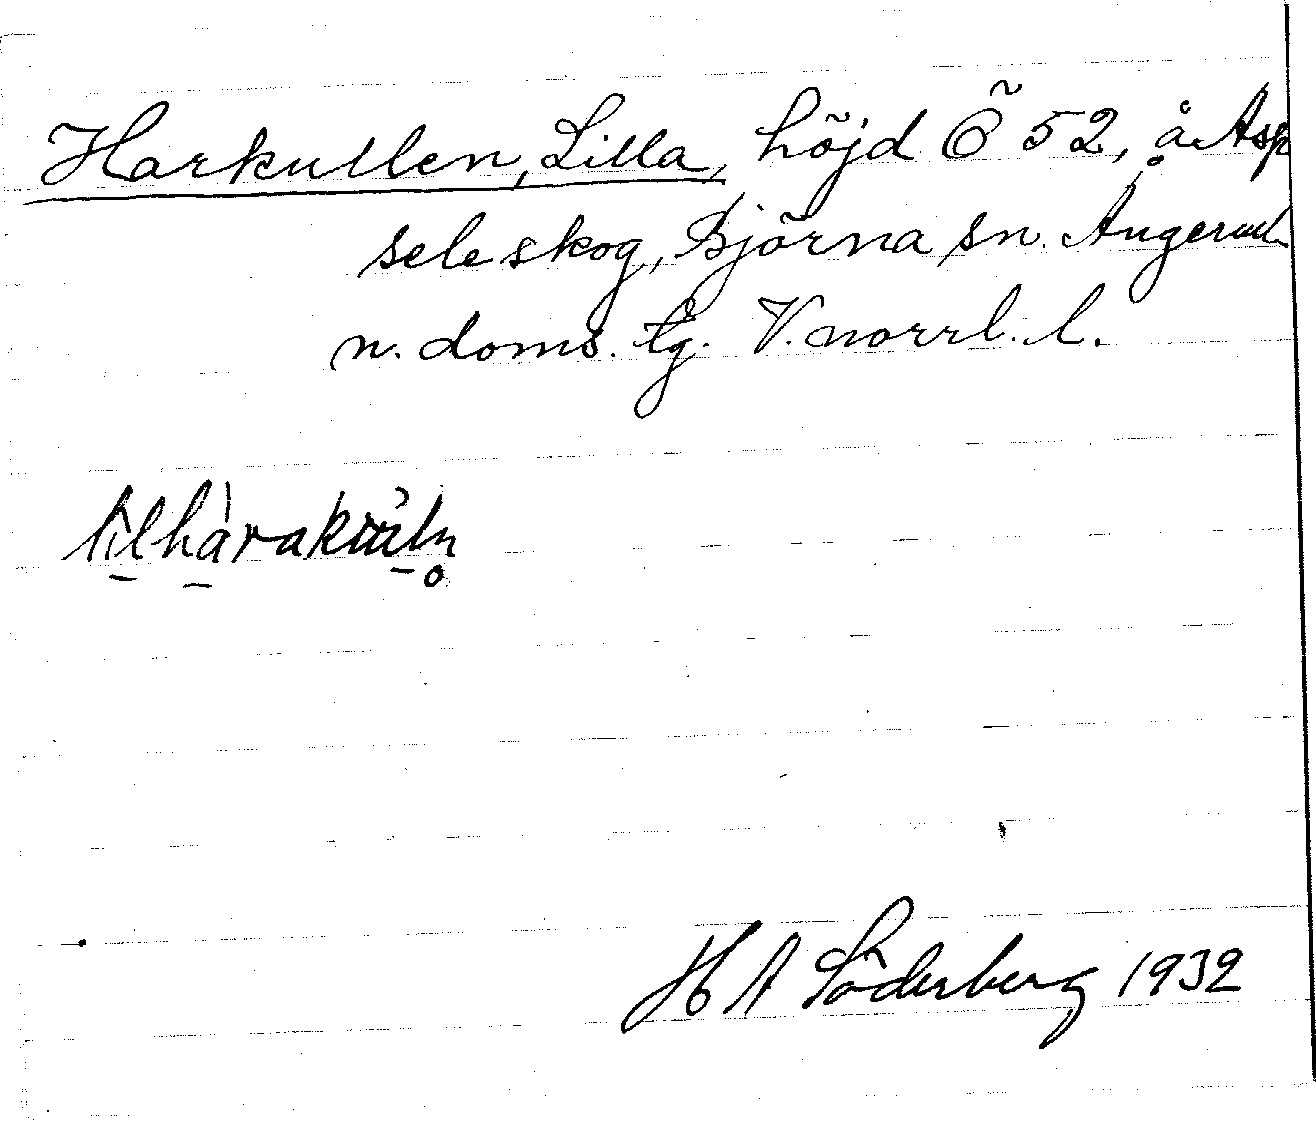 Harkullen, Lilla, höjd Ö 52, å Asp
seleskog, Björna sn. Ångerml.
n. doms. tg. V. norrl. l.
H A Söderberg 1932